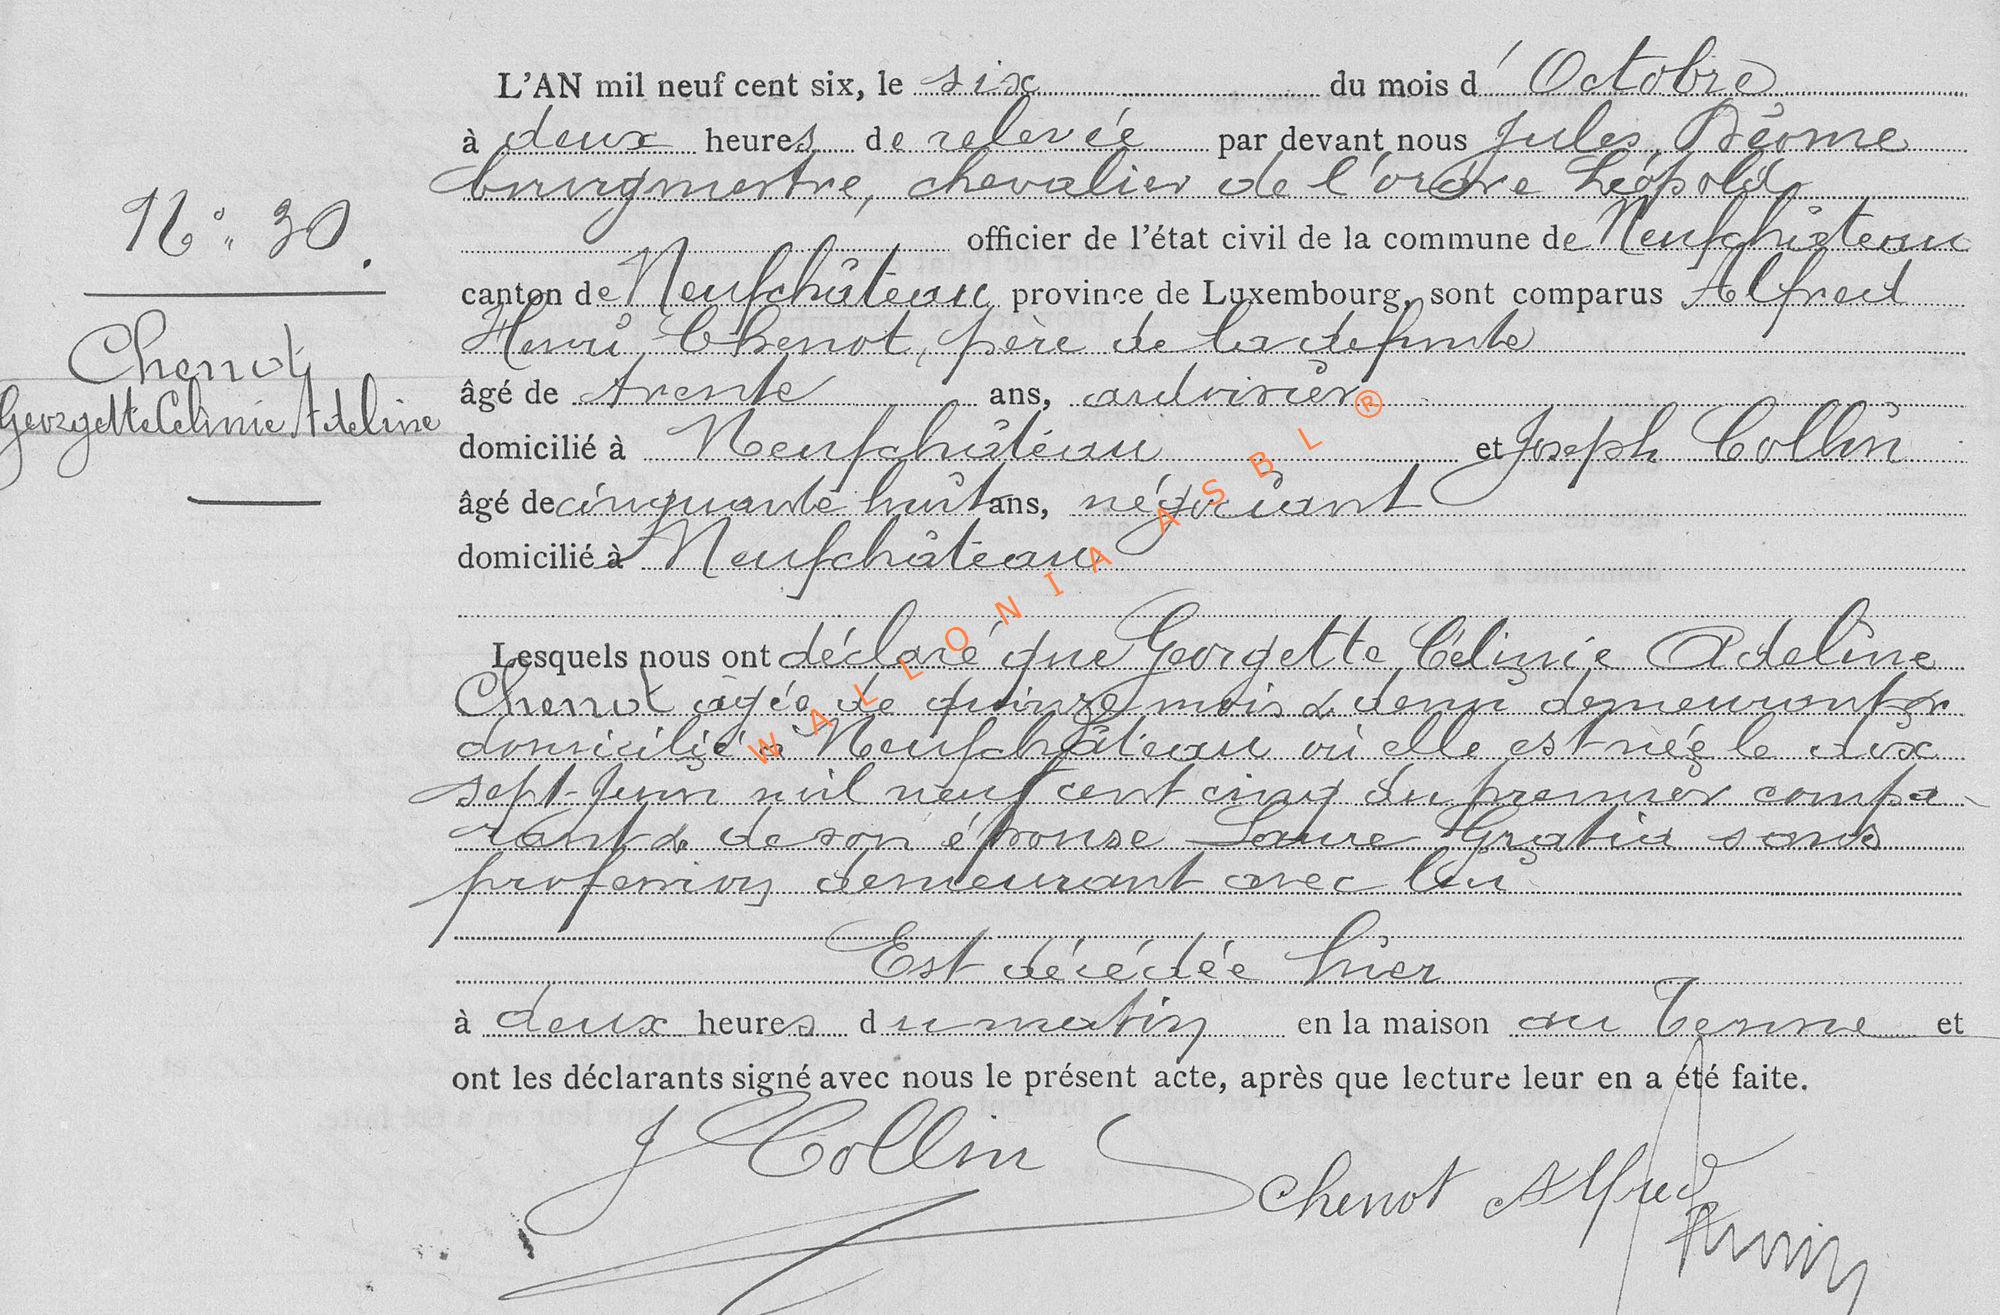 N° 30.
Chenot
Georgette Célinie Adeline
L'AN mil neuf cent six, le six du mois d'Octobre
à deux heures de relevée par devant nous Jules
bourgmestre, chevalier de l'ordre Léopold
officier de l'état civil de la commune de Neufchâteau
canton de Neufchâteau province de Luxembourg, sont comparus Alfred
Henri Chenot, père de la defunte
âgé de trente ans, ardoisier
domicilié à Neufchâteau et Joseph Collin
âgé de cinquante huit ans, négociant
domicilié à Neufchâteau
Lesquels nous ont déclaré que Georgette Célinie Adeline
Chenot agée de quinze mois & demi demeurant &
domicilié à Neufchâteau où elle est née le dix
sept Juin mil neuf cent cinq du premier compa-
rant & de son épouse Laure Gratia sans
profession demeurant avec lui
Est décédée hier
à deux heures du matin en la maison au Terme et
ont les déclarants signé avec nous le présent acte, après que lecture leur en a été faite.
J Collin
Chenot Alfred
WALLONIA ASBL ®